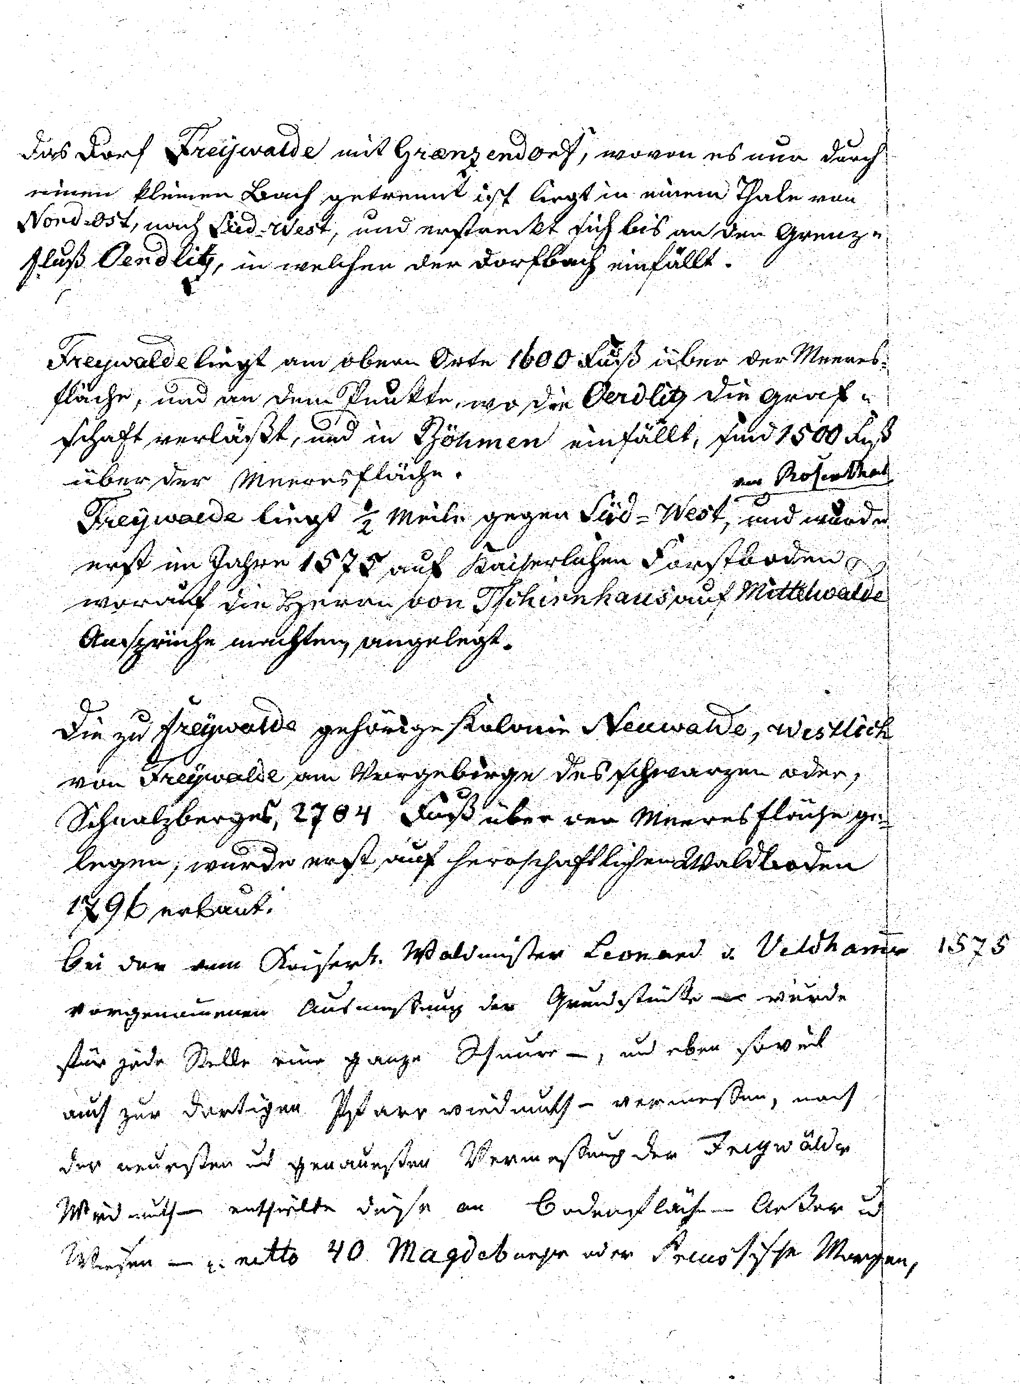 das Dorf Freÿwalde mit Grenzendorf, wovon es nur durch
einen kleinen Bach getrennt ist liegt in einem Thale von
Nord-Ost, nach Süd-West, und erstreckt sich bis an den Grenz-
fluß Oerdlitz, in welchen der Dorfbach einfällt.
Freÿwalde liegt am obern Orte 1600 Fuß über der Meeres-
fläche, und an dem Punkte, wo die Oerdlitz die Graf-
schaft verläßt, und in Böhmen einfällt, sind 1500 Fuß
über der Meeresfläche.
von Rosenthal
Freÿwalde liegt ½ Meile gegen Süd-West, und wurde
erst im Jahre 1575 auf Kaiserlichen Forstboden
worauf die Herrn von Tschirnhaus auf Mittelwalde
Ansprüche machten, angelegt.
Die zu Freÿwalde gehörige Kolonie Neuwalde, westlich
von Freÿwalde, am Vorgebirge des schwarzen oder,
Schnalzberges, 2704 Fuß über der Meeresfläche ge-
legen, wurde erst auf herrschaftlichen Waldboden
1796 erbaut.
bei der vom Kaiserl. Waldmeister Leonard v. Veldhamr 1575
vorgenommenen Ausmessung der Grundstücke wurde
für jede Stelle eine ganze Schnure –, und eben soviel
auch zur dortigen Pfarrwiedmuth – vermessen, nach
der neuesten und genauesten Vermessung der Freÿwälder
Wiedmuth – enthielte diese an Bodenfläche – Acker u
Wiesen – netto 40 Magdeburger oder Preussische Morgen,